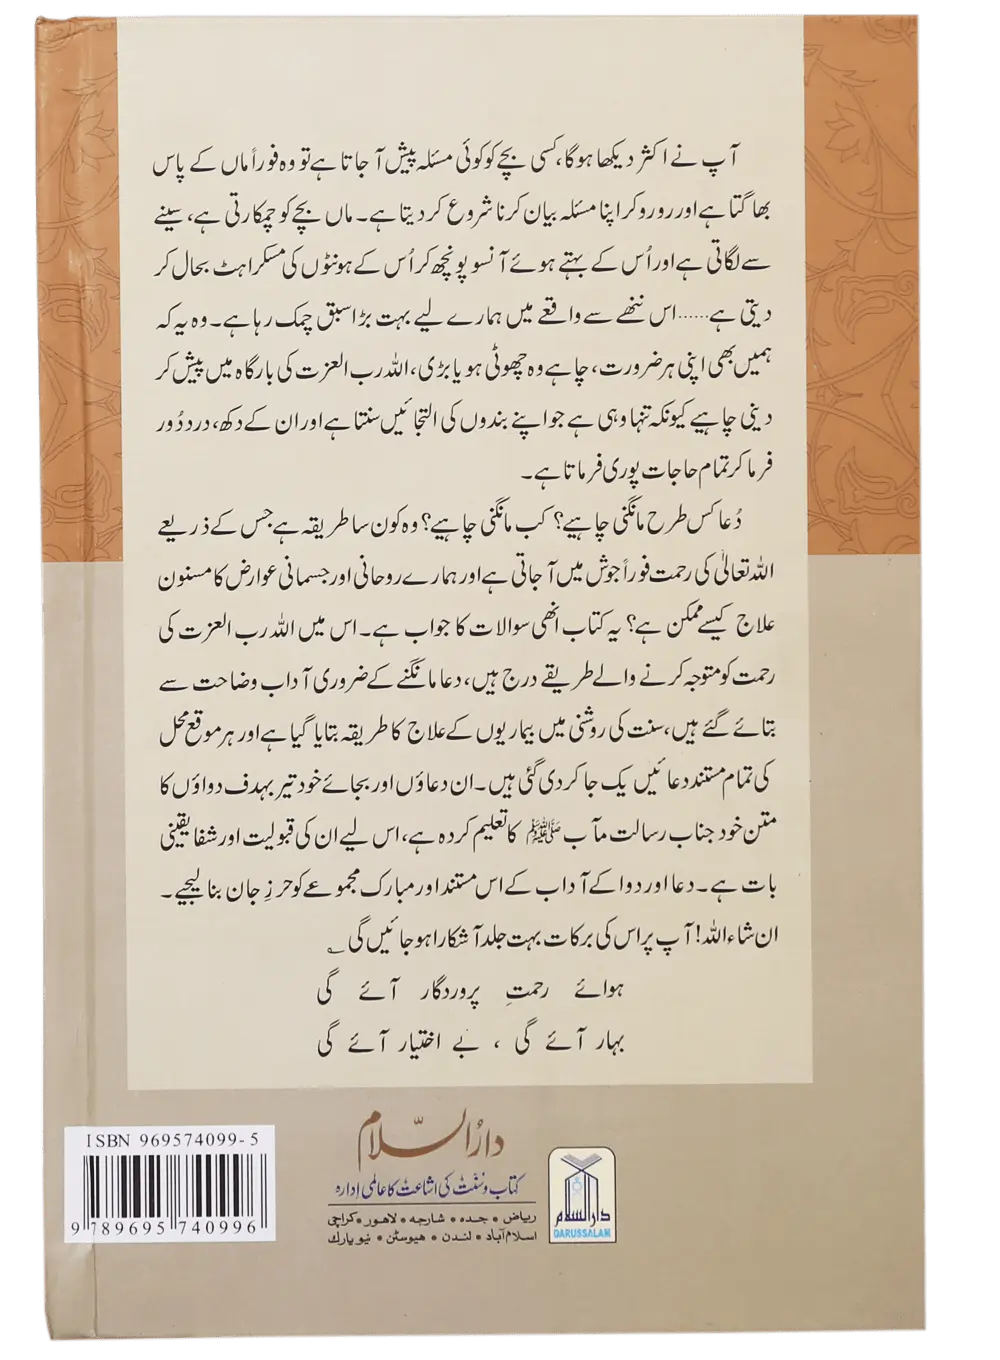 آپ نے اکثر دیکھا ہوگا، کسی بچے کو کوئی مسئلہ پیش آ جاتا ہے تو وہ فوراً ماں کے پاس
بھاگتا ہے اور رو رو کر اپنا مسئلہ بیان کرنا شروع کر دیتا ہے۔ ماں بچے کو چمکارتی ہے، سینے
سے لگاتی ہے اور اُس کے بہتے ہوئے آنسو پونچھ کر اُس کے ہونٹوں کی مسکراہٹ بحال کر
دیتی ہے...... اس ننھے سے واقعے میں ہمارے لیے بہت بڑا سبق چمک رہا ہے۔ وہ یہ کہ
ہمیں بھی اپنی ہر ضرورت، چاہے وہ چھوٹی ہو یا بڑی، اللہ رب العزت کی بارگاہ میں پیش کر
دینی چاہیے کیونکہ تنہا وہی ہے جو اپنے بندوں کی التجائیں سنتا ہے اور ان کے دکھ، درد دُور
فرما کر تمام حاجات پوری فرماتا ہے۔
دُعا کس طرح مانگنی چاہیے؟ کب مانگنی چاہیے؟ وہ کون سا طریقہ ہے جس کے ذریعے
اللہ تعالیٰ کی رحمت فوراً جوش میں آ جاتی ہے اور ہمارے روحانی اور جسمانی عوارض کا مسنون
علاج کیسے ممکن ہے؟ یہ کتاب انھی سوالات کا جواب ہے۔ اس میں اللہ رب العزت کی
رحمت کو متوجہ کرنے والے طریقے درج ہیں، دعا مانگنے کے ضروری آداب وضاحت سے
بتائے گئے ہیں، سنت کی روشنی میں بیماریوں کے علاج کا طریقہ بتایا گیا ہے اور ہر موقع محل
کی تمام مستند دعائیں یک جا کر دی گئی ہیں۔ ان دعاؤں اور بجائے خود تیر بہدف دواؤں کا
متن خود جناب رسالت مآب ﷺ کا تعلیم کردہ ہے، اس لیے ان کی قبولیت اور شفا یقینی
بات ہے۔ دعا اور دوا کے آداب کے اس مستند اور مبارک مجموعے کو حرزِ جان بنا لیجیے۔
ان شاء اللہ! آپ پر اس کی برکات بہت جلد آشکارا ہو جائیں گی ؎
ہوائے رحمتِ پروردگار آئے گی
بہار آئے گی ، بے اختیار آئے گی
دارُالسّلام
کتاب و سنّت کی اشاعت کا عالمی ادارہ
ریاض • جدہ • شارجہ • لاہور • کراچی
اسلام آباد • لندن • ہیوسٹن • نیو یارک
دارالسلام
DARUSSALAM
ISBN 969574099-5
9 789695 740996